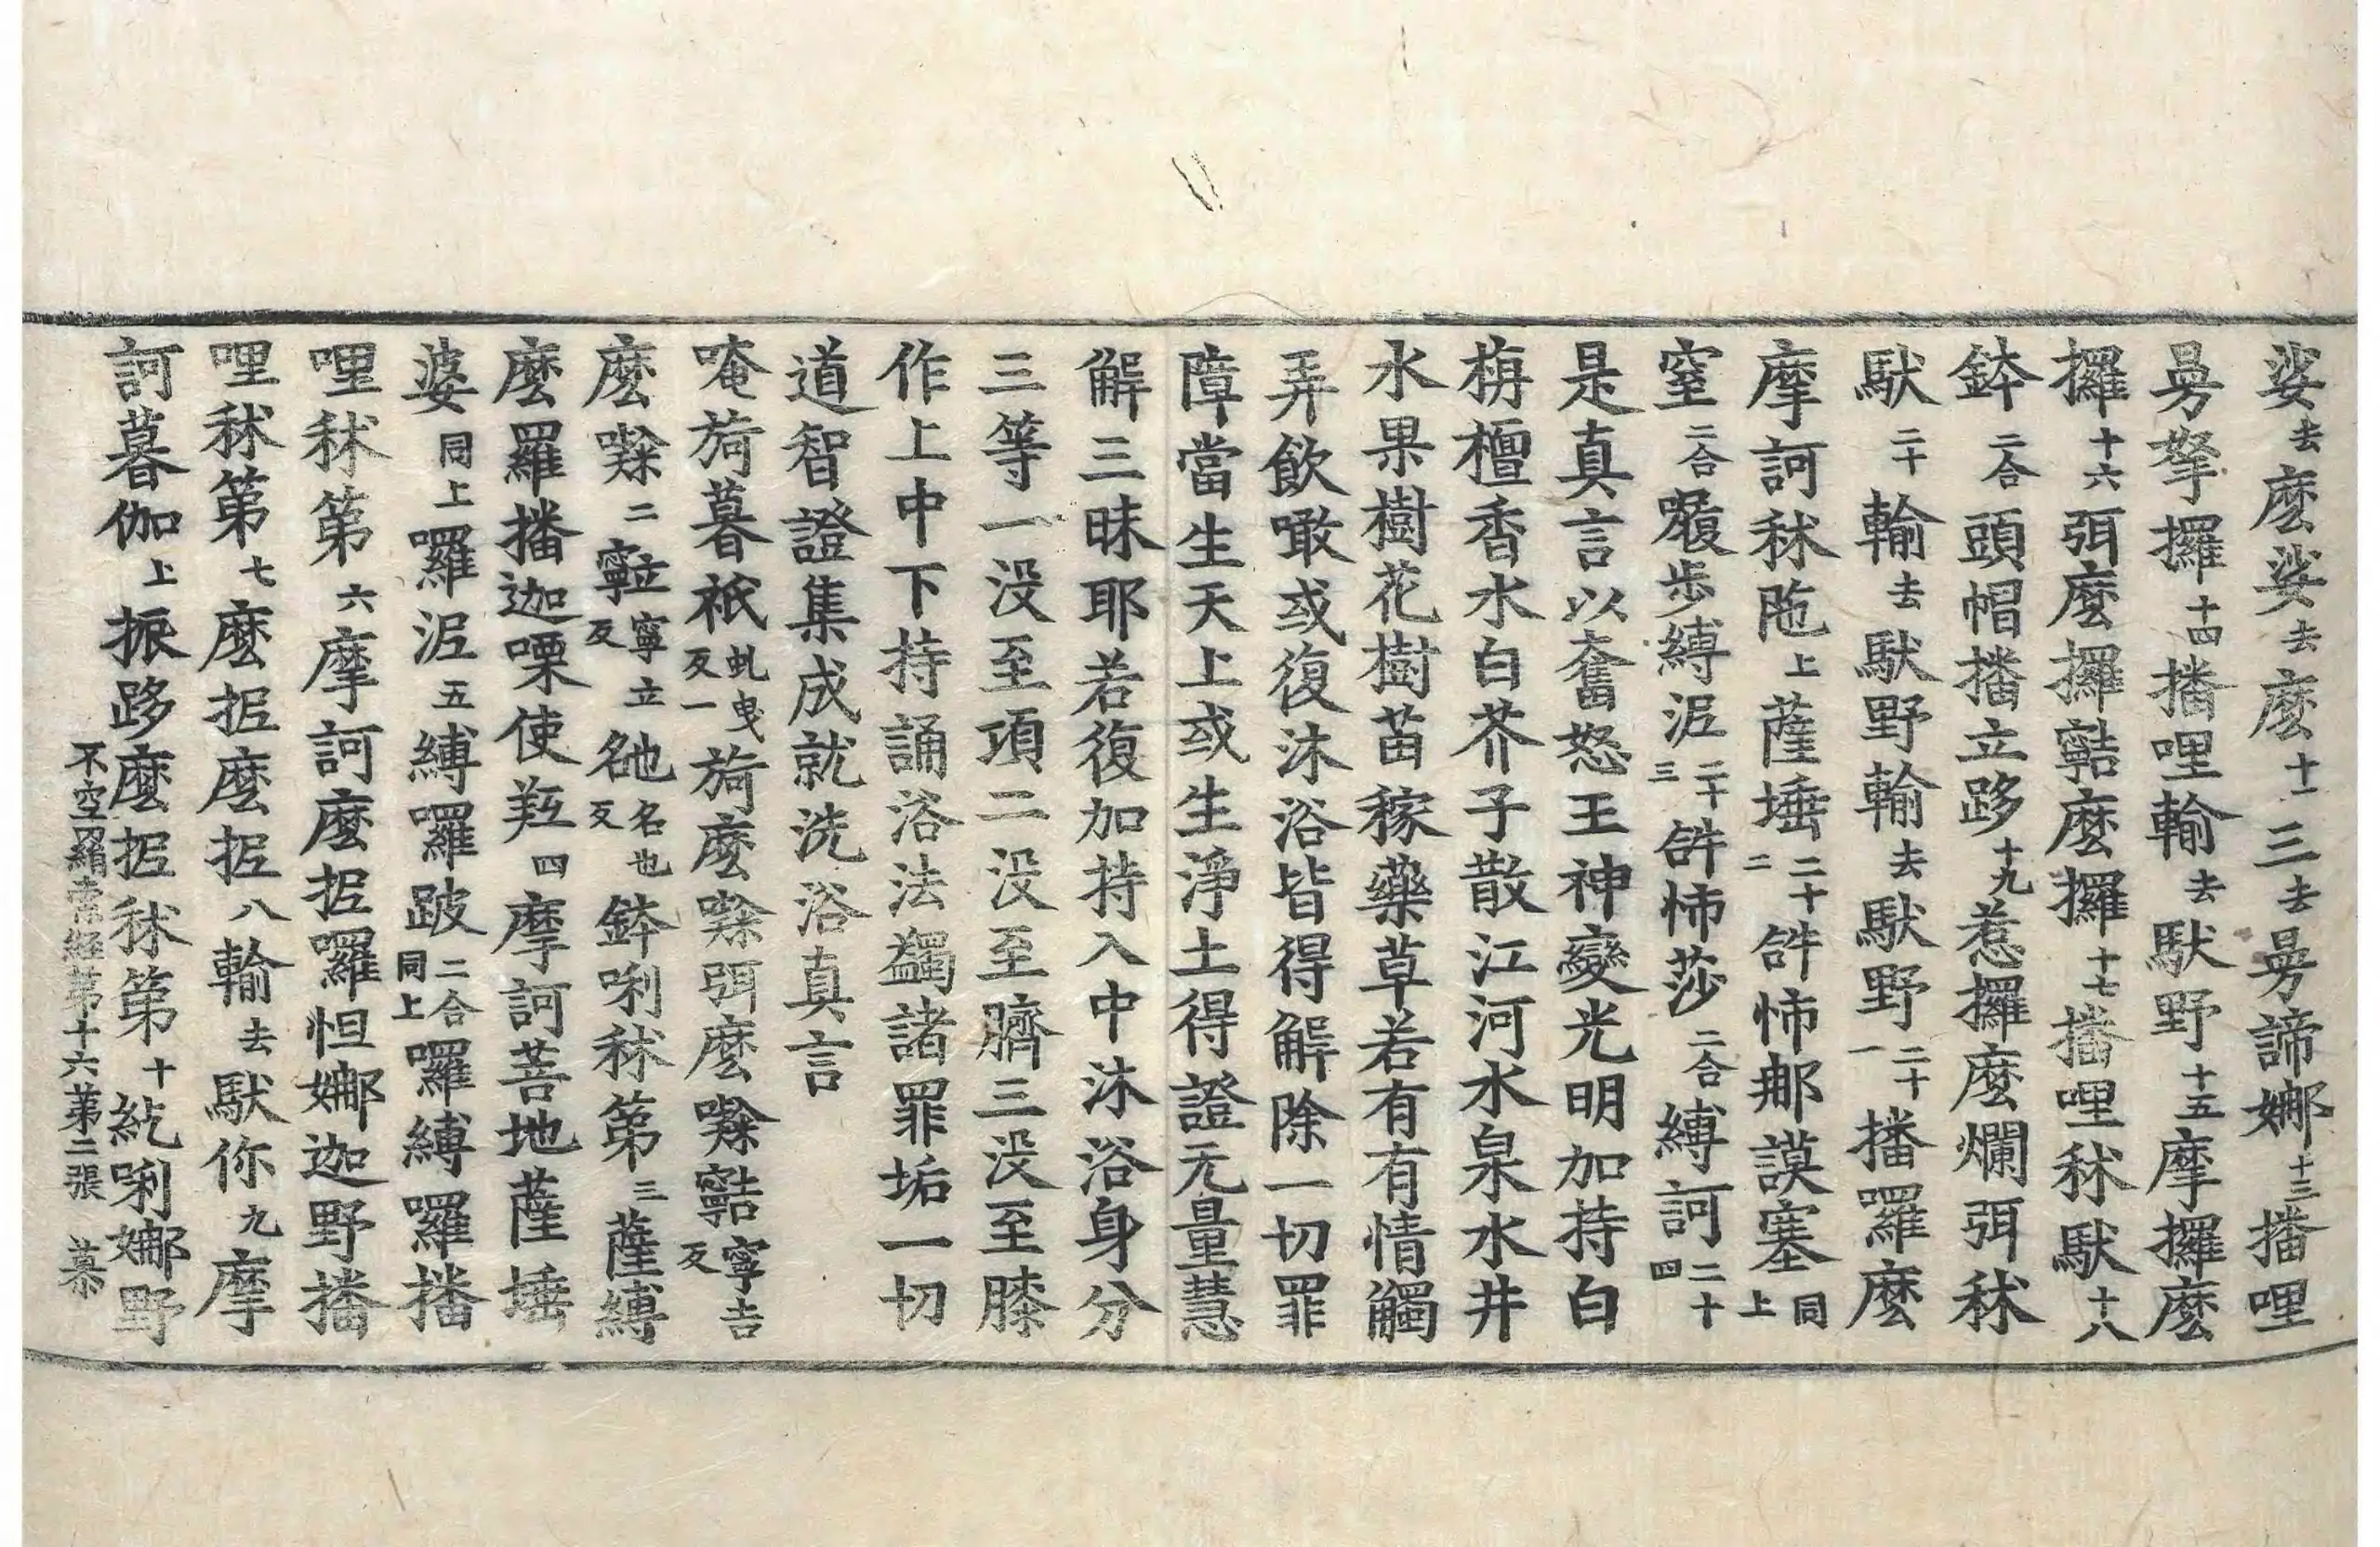 娑去麼娑去麼十二三去曼諦娜十三播哩
曼拏攞十四播哩輸去馱野十五摩攞麼
攞十六弭麼攞𪐴麼攞十七播哩秫馱十八
鉢二合頭帽播立跢十九惹攞麼爛弭秫
馱二十輸去馱野輸去馱野二十一播羅麼
摩訶秫陁上薩埵二十二𤙖怖那謨塞同上
窒二合㘑步縛泥二十三𤙖怖莎二合縛訶二十四
是真言以奮怒王神變光明加持白
栴檀香水白芥子散江河水泉水井
水果樹花樹苗稼藥草若有有情觸
弄飲噉或復沐浴皆得解除一切罪
障當生天上或生淨土得證无量慧
解三昧耶若復加持入中沐浴身分
三等一没至項二没至臍三没至膝
作上中下持誦浴法蠲諸罪垢一切
道智證集成就洗浴真言
唵旖暮祇虬曳反一旖麼㘑弭麼㘑𪐴寧吉反
麼㘑二𪐀寧立反䫂名也反鉢唎秫第三薩縛
麼羅播迦㗚使羫四摩訶菩地薩埵
婆同上囉泥五縛囉跛二合同上囉縛囉播
哩秫第六摩訶麼抳囉怛娜迦野播
哩秫第七麼抳麼抳八輸去馱你九摩
訶暮伽上振跢麼抳秫第十紇唎娜野
不空羂索經第十六第二張 慕